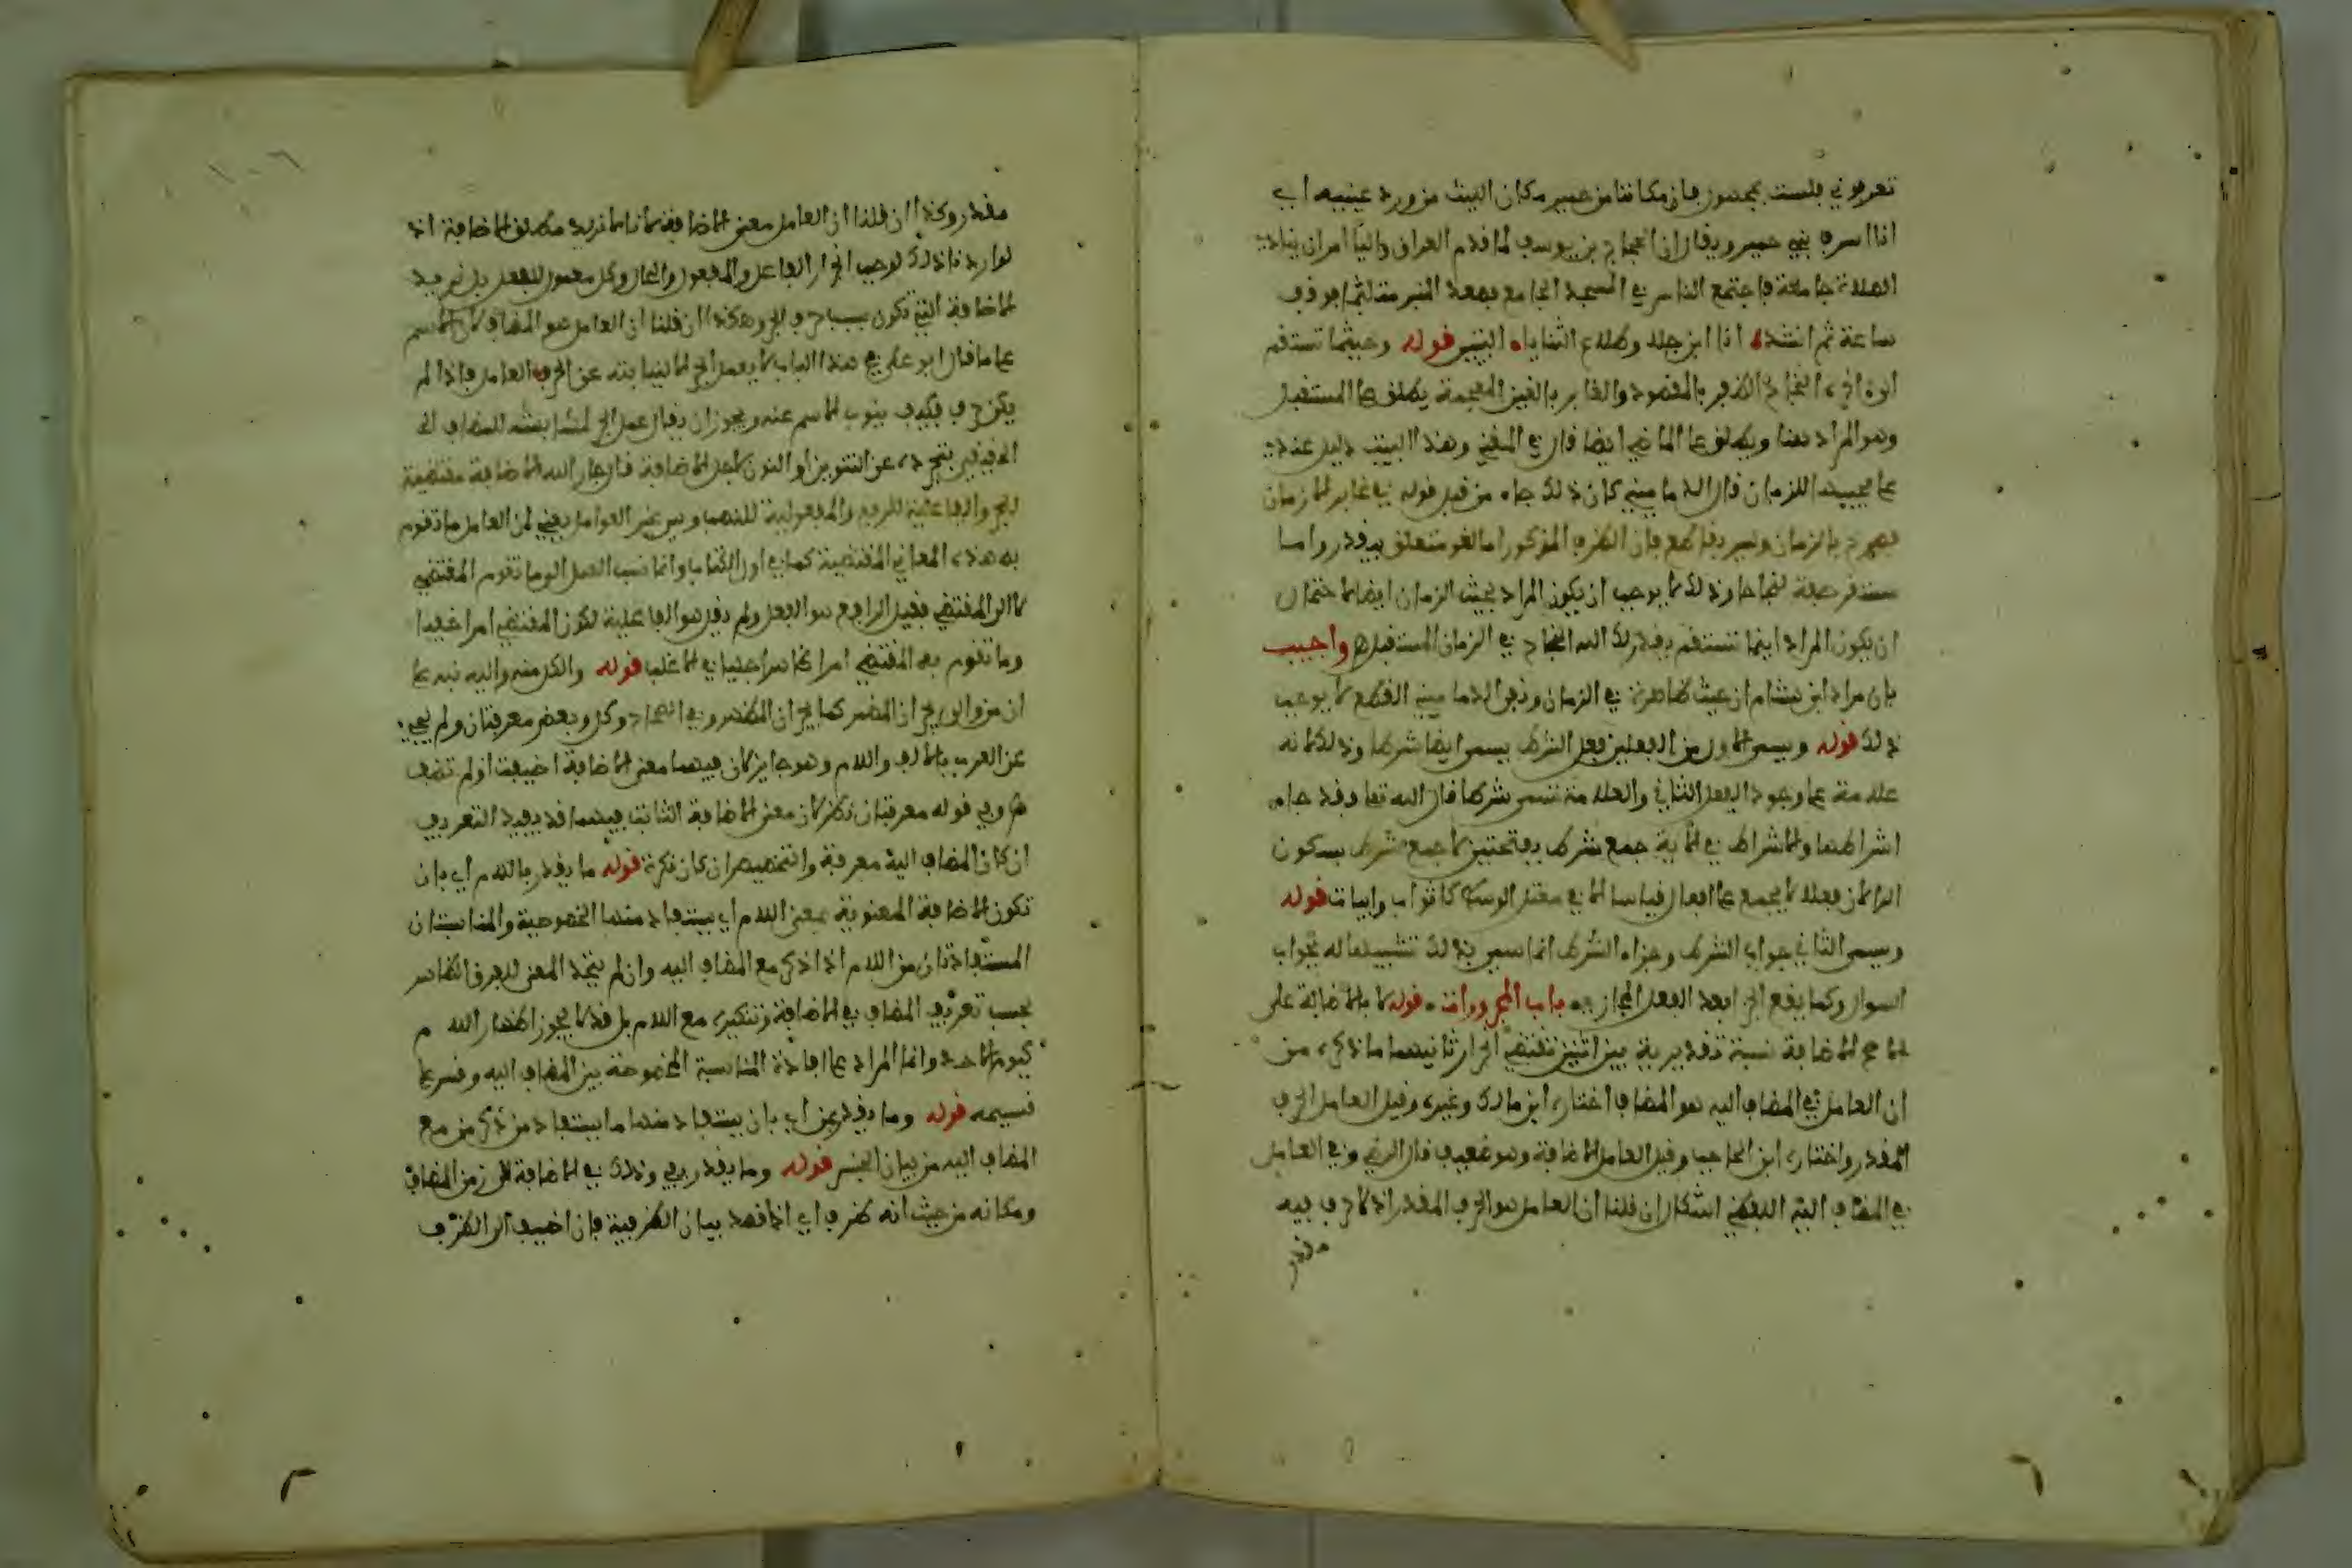 تعرفوني فلست بمجهول فان مكاننا من حمير مكان البيت من ورد عينيه اي
انا اسرف بني حمير ويقال ان الحجاج بن يوسف لما قدم العراق واليا امر ان ينادى
الصلاة جامعة فاجتمع الناس في المسجد الجامع فصعد المنبر متلثما فوقف
ساعة ثم انشد انا ابن جلا وطلاع الثنايا البيت قوله وحيثما تستقم
البيت النجاح الظفر بالمقصود والغابر بالغين المعجمة يطلق على المستقبل
وهو المراد هنا ويطلق على الماضي ايضا قال في المغني وهذا البيت دليل عندي
على مجيئها للزمان قال الدماميني كان ذلك جاء من قبل قوله في غابر الازمان
فصرح بالزمان وليس بقاطع فان الظرف المذكور اما لغو متعلق بيقدر واما
مستقر صفة لنجاحا وذلك لا يوجب ان يكون المراد بحيث الزمان ايضا لاحتمال
ان يكون المراد اينما تستقم يقدر لك الله النجاح في الزمان المستقبل واجيب
بان مراد ابن هشام ان حيث ظاهرة في الزمان ونفي الدماميني القطع لا يوجب
ذلك قوله ويسمى الاول من الفعلين فعل الشرط يسمى ايضا شرطا وذلك لانه
علامة على وجود الفعل الثاني والعلامة تسمى شرطا قال الله تعالى فقد جاء
اشراطها والاشراط في الاية جمع شرط بفتحتين لا جمع شرط بسكون
الرا لان فعلا لا يجمع على افعال قياسا الا في معتل الوسط كاثواب وابيات قوله
ويسمى الثاني جواب الشرط وجزاء الشرط انما سمي بذلك تشبيها له بجواب
السوال وكما يقع الجزا بعد الفعل المجازى به باب المجرورات قوله لا بالاضافة على
الاصح الاضافة نسبة تقديرية بين اثنين تقتضي انجرار ثانيهما ما ذكره من
ان العامل في المضاف اليه هو المضاف اختاره ابن مالك وغيره وقيل العامل الحرف
المقدر واختاره ابن الحاجب وقيل العامل الاضافة وهو ضعيف قال الرضي وفي العامل
في المضاف اليه اللفظي اشكال ان قلنا ان العامل هو الحرف المقدر اذ لا حرف فيه
مقدر
مقدر وكذا ان قلنا ان العامل معنى الاضافة لانا لا نريد مطلق الاضافة اذ
لو اردنا ذلك لوجب انجرار الفاعل والمفعول والحال وكل معمول للفعل بل نريد
الاضافة التي تكون بسبب حرف الجر وهكذا ان قلنا ان العامل هو المضاف لان الاسم
على ما قال ابو علي في هذا الباب لا يعمل الجر الا لنيابته عن الحرف العامل فاذا لم
يكن حرف فكيف ينوب الاسم عنه ويجوز ان يقال عمل الجر لمشابهته للمضاف
الحقيقي بتجرده عن التنوين او النون لاجل الاضافة قال جار الله الاضافة مقتضية
للجر والفاعلية للرفع والمفعولية للنصب وهي غير العوامل يعني لان العامل ما تقوم
به هذه المعاني المقتضية كما في اول الكتاب وانما نسب العمل الى ما تقوم المقتضى
لا الى المقتضى فقيل الرافع هو الفعل ولم يقل هو الفاعلية لكون المقتضى امرا خفيا
وما تقوم به المقتضى امرا ظاهرا جليا في الاغلب قوله والكل منه واليه نبه على
ان من والى يجران المضمر كما يجران المظهر وفي الصحاح وكل وبعض معرفتان ولم يجئ
عن العرب بالالف واللام وهو جايز لان فيهما معنى الاضافة اضيفت او لم تضف
وفي قوله معرفتان نظر لان معنى الاضافة الثابت فيهما قد يفيد التعريف
ان كان المضاف اليه معرفة والتخصيص ان كان نكرة قوله ما يقدر باللام اي بان
تكون الاضافة المعنوية بمعنى اللام اي يستفاد منها الخصوصية والمناسبة
المستفادتان من اللام اذا ذكر مع المضاف اليه وان لم يتحد المعنى للفرق الظاهر
بحسب تعرف المضاف في الاضافة وتنكيره مع اللام بل قد لا يجوز اظهار اللام
كيوم الاحد وانما المراد على افادة المناسبة المخصوصة بين المضاف اليه وقس على
قسيمه قوله وما يقدر بمن اي بان يستفاد منها ما يستفاد من ذكر من مع
المضاف اليه من بيان الجنس قوله وما يقدر بفي وذلك في الاضافة الى زمن المضاف
ومكانه من حيث انه ظرف اي اذا قصد بيان الظرفية فان اضيف الى الظرف